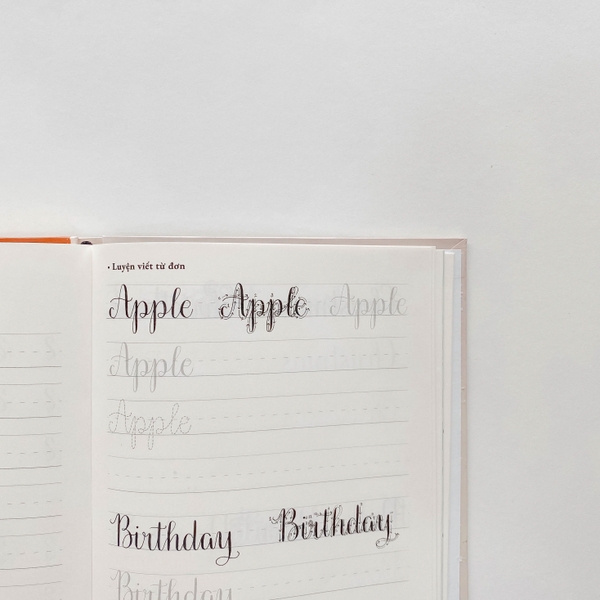 • Luyện viết từ đơn
Apple Apple Apple
Apple
Apple
Birthday Birthday
Birthday